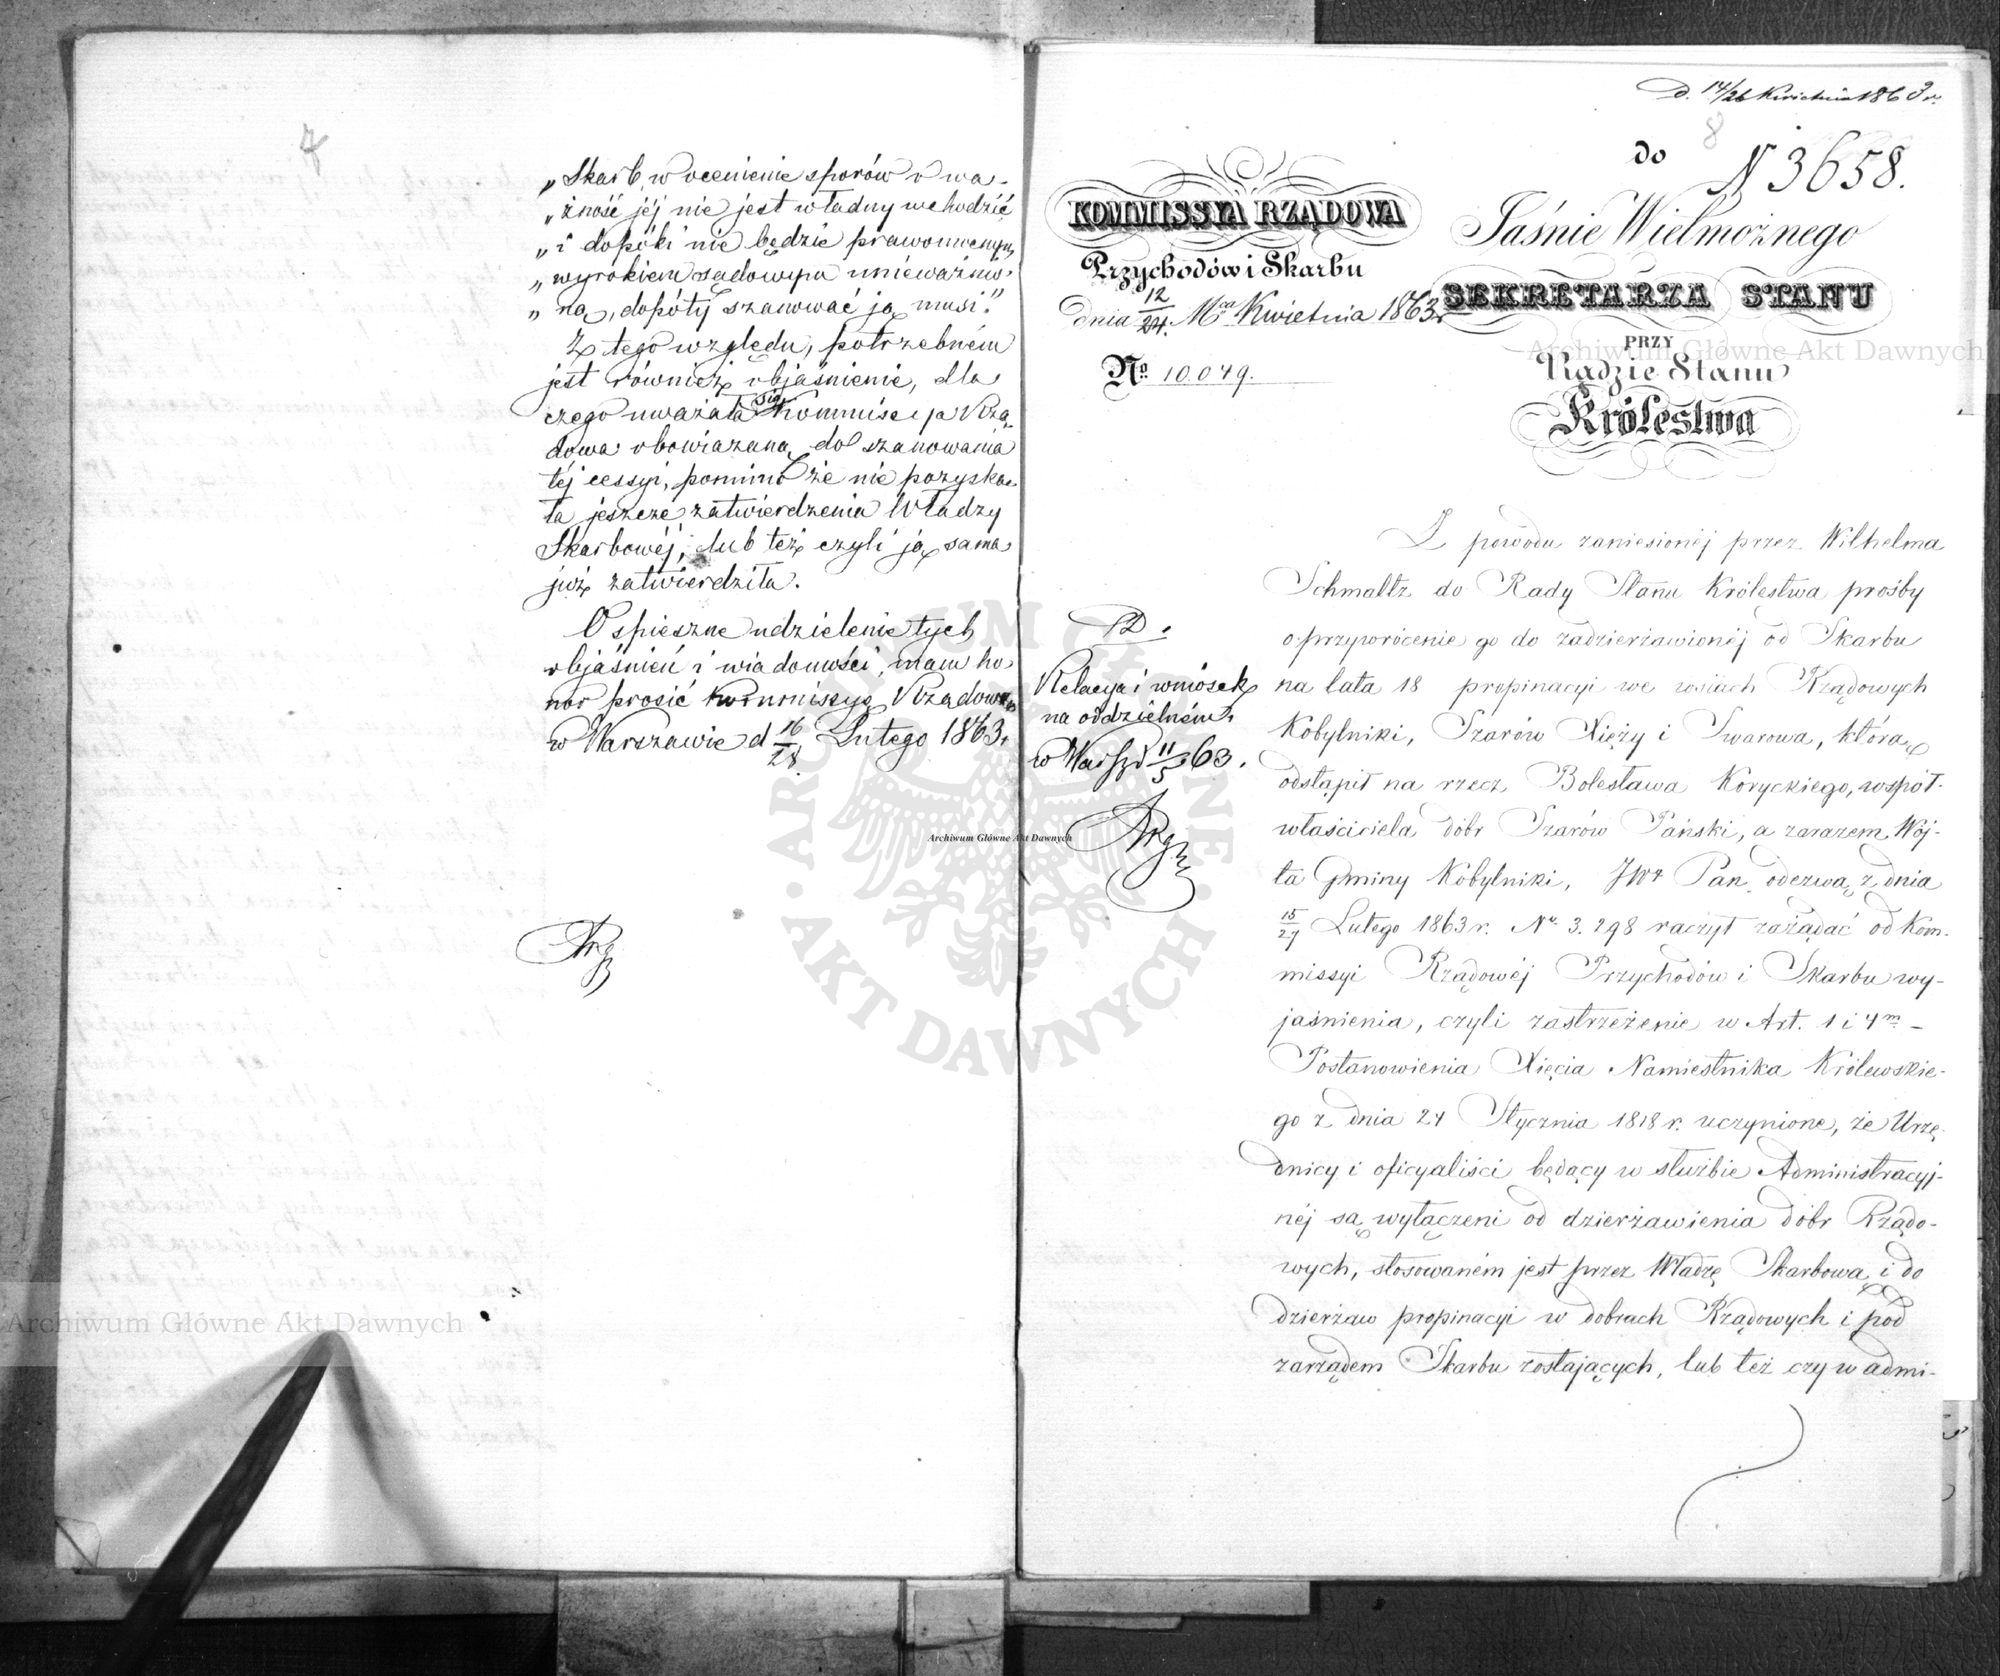 „Skarb, w ocenienie sporów o wa-
„żność jéj nie jest władny wchodzić
„i dopóki nie będzie prawomocnym
„wyrokiem sądowym unieważnio-
„ną, dopóty szanować ją musi."
Z tego względu, potrzebném
jest również objaśnienie, dla
czego uważała się Kommissya Rzą-
dowa obowiązaną do szanowania
téj cessyi, pomimo że nie pozyska-
ła jeszcze zatwierdzenia Władzy
Skarbowéj, lub też czyli ją sama
już zatwierdziła.
O spieszne udzielenie tych
objaśnień i wiadomości, mam ho-
nor prosić Kommissyę Rządową
w Warszawie d 16/28 Lutego 1863 r
D. 14/26 Kwietnia 1863 r.
8
do
N 3658.
KOMMISSYA RZĄDOWA
Przychodów i Skarbu
dnia 12/24 Mca Kwietnia 1863 r
No 10.049.
Jaśnie Wielmożnego
SEKRETARZA STANU
PRZY
Radzie Stanu
Królestwa
Z powodu zaniesionéj przez Wilhelma
Schmaltz do Rady Stanu Królestwa prośby
o przywrócenie go do zadzierżawionéj od Skarbu
na lata 18 propinacyi we wsiach Rządowych
Kobylniki, Szarów Xięży i Swarowa, którą
odstąpił na rzecz Bolesława Koryckiego, współ-
właściciela dóbr Szarów Pański, a zarazem Wój-
ta Gminy Kobylniki, JWy Pan odezwą z dnia
15/27 Lutego 1863 r. No 3.298 raczył zażądać od Kom-
missyi Rządowéj Przychodów i Skarbu wy-
jaśnienia, czyli zastrzeżenie w Art. 1 i 4m
Postanowienia Xięcia Namiestnika Królewskie-
go z dnia 24 Stycznia 1818 r. uczynione, że Urzę-
dnicy i oficyaliści będący w służbie Administracyj-
néj są wyłączeni od dzierżawienia dóbr Rządo-
wych, stosowaném jest przez Władzę Skarbową i do
dzierżaw propinacyi w dobrach Rządowych i pod
zarządem Skarbu zostających, lub też czy w admi-
D.
Relacya i wniosek
na oddzielném
w Warsz d 11/5 63.
Archiwum Główne Akt Dawnych
Archiwum Główne Akt Dawnych
Archiwum Główne Akt Dawnych
ARCHIWUM GŁÓWNE · AKT DAWNYCH ·